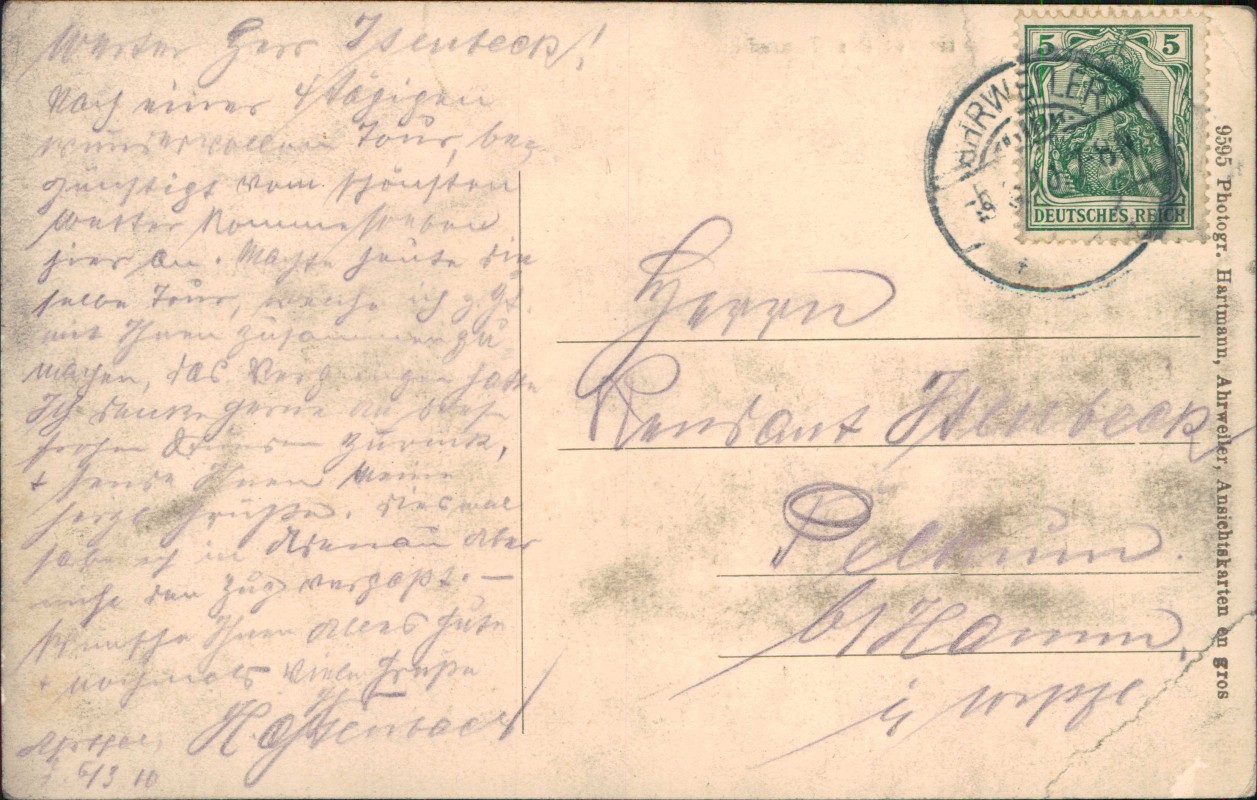 Werter Herr Isenbeck!
Nach einer 4tägigen
wundervollen Tour, be-
günstigt vom schönsten
Wetter komme soeben
hier an. Machte heute die
selbe Tour, welche ich z. Zt.
mit Ihnen zusammen zu
machen, das Vergnügen hatte
Ich denke gerne an diese
frohen Stunden zurück,
+ sende Ihnen meine
herzl. Grüße. Diesmal
habe ich in Adenau aber
nicht den Zug verpaßt. —
Wünsche Ihnen alles Gute
+ nochmals viele Grüße
Ihr
H.
Ahrthal,
3 10
5 5
DEUTSCHES REICH
AHRWEILER
Herrn
Rendant Isenbeck
Pelkum
b/Hamm,
i/ Westf.
9595 Photogr. Hartmann, Ahrweiler, Ansichtskarten en gros